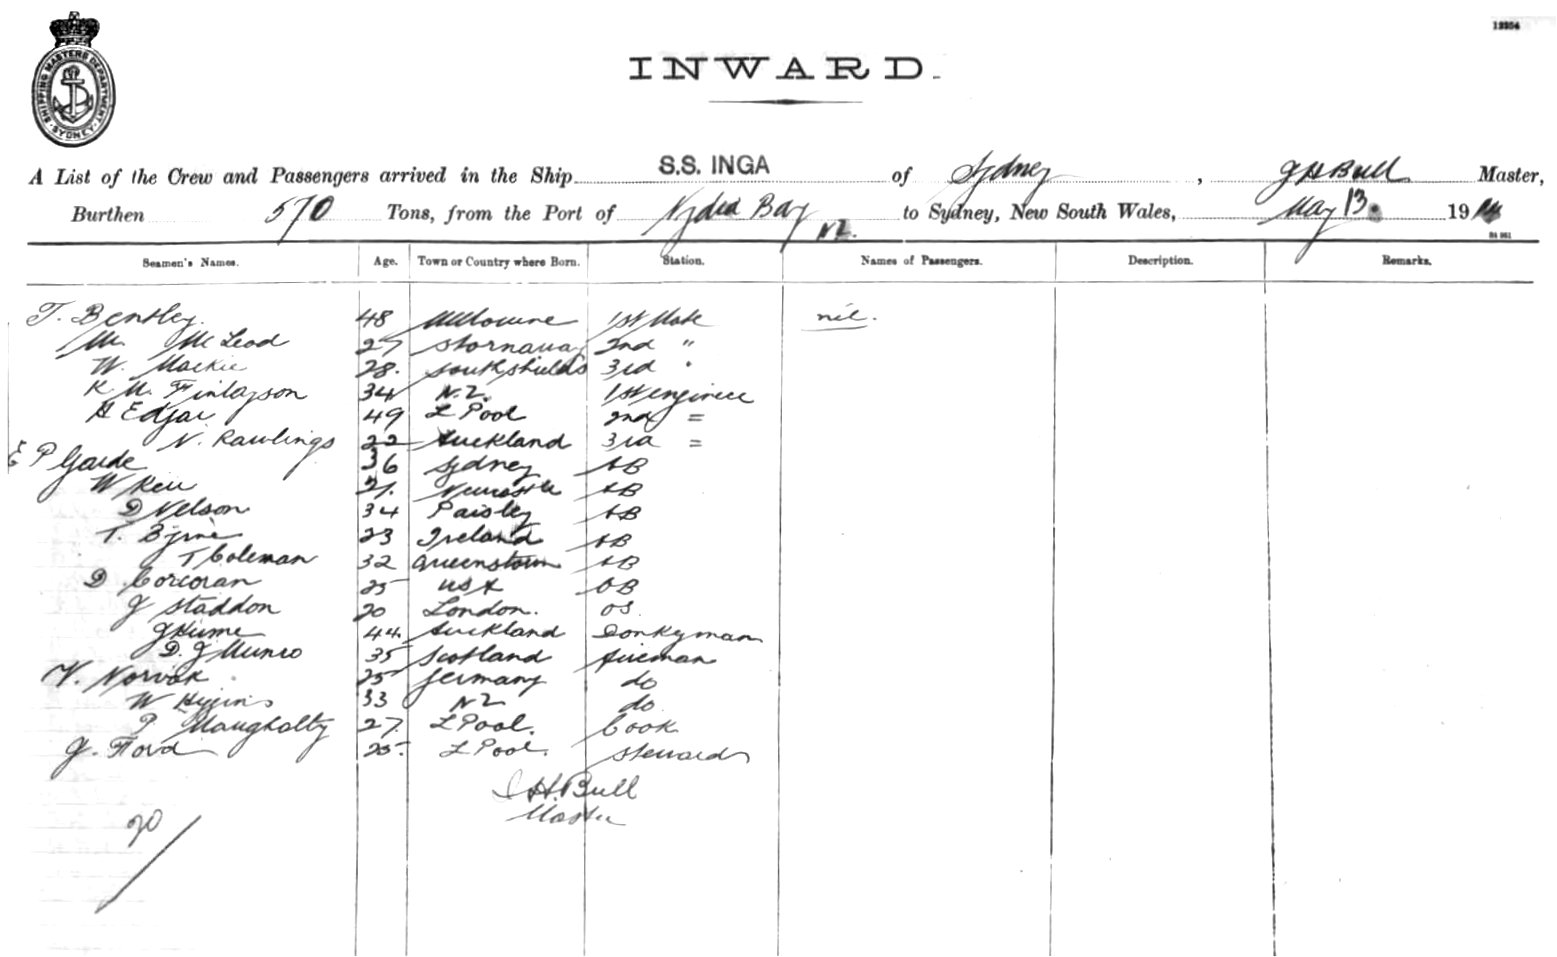 SHIPPING MASTERS DEPARTMENT. SYDNEY
13304
INWARD.
A List of the Crew and Passengers arrived in the Ship S.S. INGA of Sydney, J H Bull Master,
Burthen 570 Tons, from the Port of Nydia Bay NZ. to Sydney, New South Wales, May 13 19
Seamen's Names. Age. Town or Country where Born. Station. Names of Passengers. Description. Remarks.
T. Bentley 48 Melbourne 1st Mate nil.
M. McLeod 27 Stornaway 2nd "
W. Mackie 28. South Shields 3rd "
K M. Finlayson 34 N.Z. 1st engineer
A Edgar 49 L Pool 2nd =
N. Rawlings 22 Auckland 3rd =
E P Garde 36 Sydney AB
W Kerr 21. Newcastle AB
D Nelson 34 Paisley AB
T. Byrne 23 Ireland AB
T Coleman 32 Queenstown AB
D Corcoran 25 USA AB
J Staddon 20 London. OS.
J Hume 44. Auckland Donkyman
D. J Munro 35 Scotland fireman
W. Norvak 25 Germany do
W Higgins 33 NZ do
P Maughalty 27. L Pool. Cook
J. Ford 25. L Pool. Steward
J H. Bull
Master
20